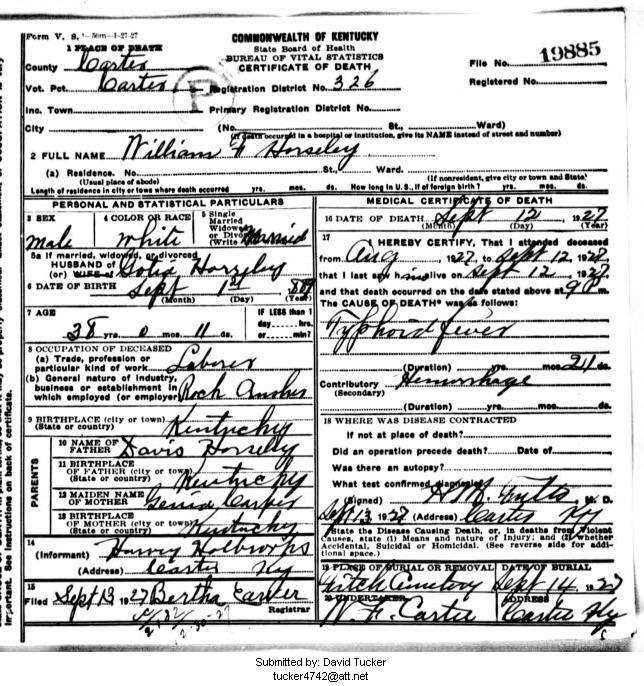 Form V. S.
COMMONWEALTH OF KENTUCKY
State Board of Health
BUREAU OF VITAL STATISTICS
CERTIFICATE OF DEATH
File No. 19885
Registered No.
1 PLACE OF DEATH
County Carter
Vot. Pct. Carter Registration District No. 326
Inc. Town Primary Registration District No.
City (No. St., Ward)
(If death occurred in a hospital or institution, give its NAME instead of street and number)
2 FULL NAME William F Horseley
(a) Residence. No. St., Ward.
(Usual place of abode) (If nonresident, give city or town and State)
Length of residence in city or town where death occurred yrs. mos. ds. How long in U. S., if of foreign birth? yrs. mos. ds.
PERSONAL AND STATISTICAL PARTICULARS
3 SEX male
4 COLOR OR RACE white
5 Single Married Widowed or Divorced (Write Married
5a If married, widowed, or divorced
HUSBAND of Horsley
(or) WIFE of
6 DATE OF BIRTH Sept 1st 1889
(Month) (Day) (Year)
7 AGE 38 yrs. 0 mos. 11 ds.
IF LESS than 1 day hrs. or min?
8 OCCUPATION OF DECEASED
(a) Trade, profession or particular kind of work Laborer
(b) General nature of industry, business or establishment in which employed (or employer) Rock
9 BIRTHPLACE (city or town) (State or country) Kentucky
PARENTS
10 NAME OF FATHER Davis Horseley
11 BIRTHPLACE OF FATHER (city or town) (State or country) Kentucky
12 MAIDEN NAME OF MOTHER
13 BIRTHPLACE OF MOTHER (city or town) (State or country) Kentucky
14 (Informant) Harvey
(Address) Carter Ky
15 Filed Sept 13 1927 Bertha Carver
Registrar
MEDICAL CERTIFICATE OF DEATH
16 DATE OF DEATH Sept 12 1927
(Month) (Day) (Year)
17 I HEREBY CERTIFY, That I attended deceased
from Aug 1927 to Sept 12 1927
that I last saw him alive on Sept 12 1927
and that death occurred on the date stated above at 9 P m.
The CAUSE OF DEATH* was as follows:
Typhoid fever
(Duration) yrs. mos. 21 ds.
Contributory Hemorrhage
(Secondary)
(Duration) yrs. mos. ds.
18 WHERE WAS DISEASE CONTRACTED
If not at place of death?
Did an operation precede death? Date of
Was there an autopsy?
What test confirmed diagnosis?
(Signed) H M M. D.
Sept 13 1927 (Address) Carter Ky
State the Disease Causing Death, or, in deaths from Violent
Causes, state (1) Means and nature of Injury; and (2) whether
Accidental, Suicidal or Homicidal. (See reverse side for addi-
tional space.)
19 PLACE OF BURIAL OR REMOVAL DATE OF BURIAL
Fitch Cemetery Sept 14 1927
20 UNDERTAKER ADDRESS
W. F. Carter Carter Ky
See instructions on back of certificate.
Submitted by: David Tucker
tucker4742@att.net